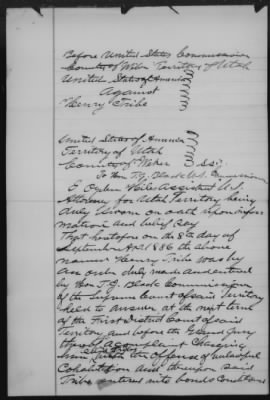 Before United States Commissioner
County of Weber Territory of Utah
United States of America
Against
Henry Tribe
United States of America
Territory of Utah
County of Weber SS:
To Hon T.J. Black U.S. Commissioner
E Ogden Hiles Assistant U.S.
Attorney for Utah Territory being
duly sworn on oath upon infor
mation and belief say
That heretofore on the 8th day of
September AD 1886 the above
named Henry Tribe was by
an order duly made and entered
by Hon T.J. Black Commissioner
of the Supreme Court of said Territory
held to answer at the next term
of the First District Court of said
Territory and before the Grand Jury
thereof a complaint charging
him with the offense of unlawful
Cohabitation and thereupon said
Tribe entered into bonds Conditioned